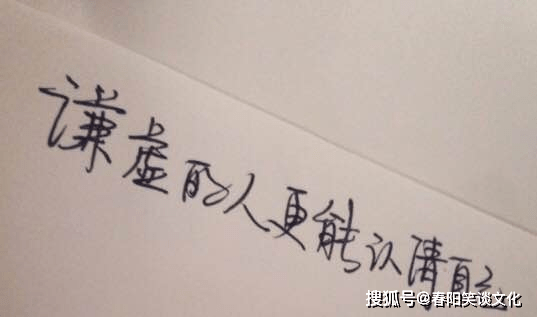 谦虚的人更能认清自己
搜狐号@春阳笑谈文化